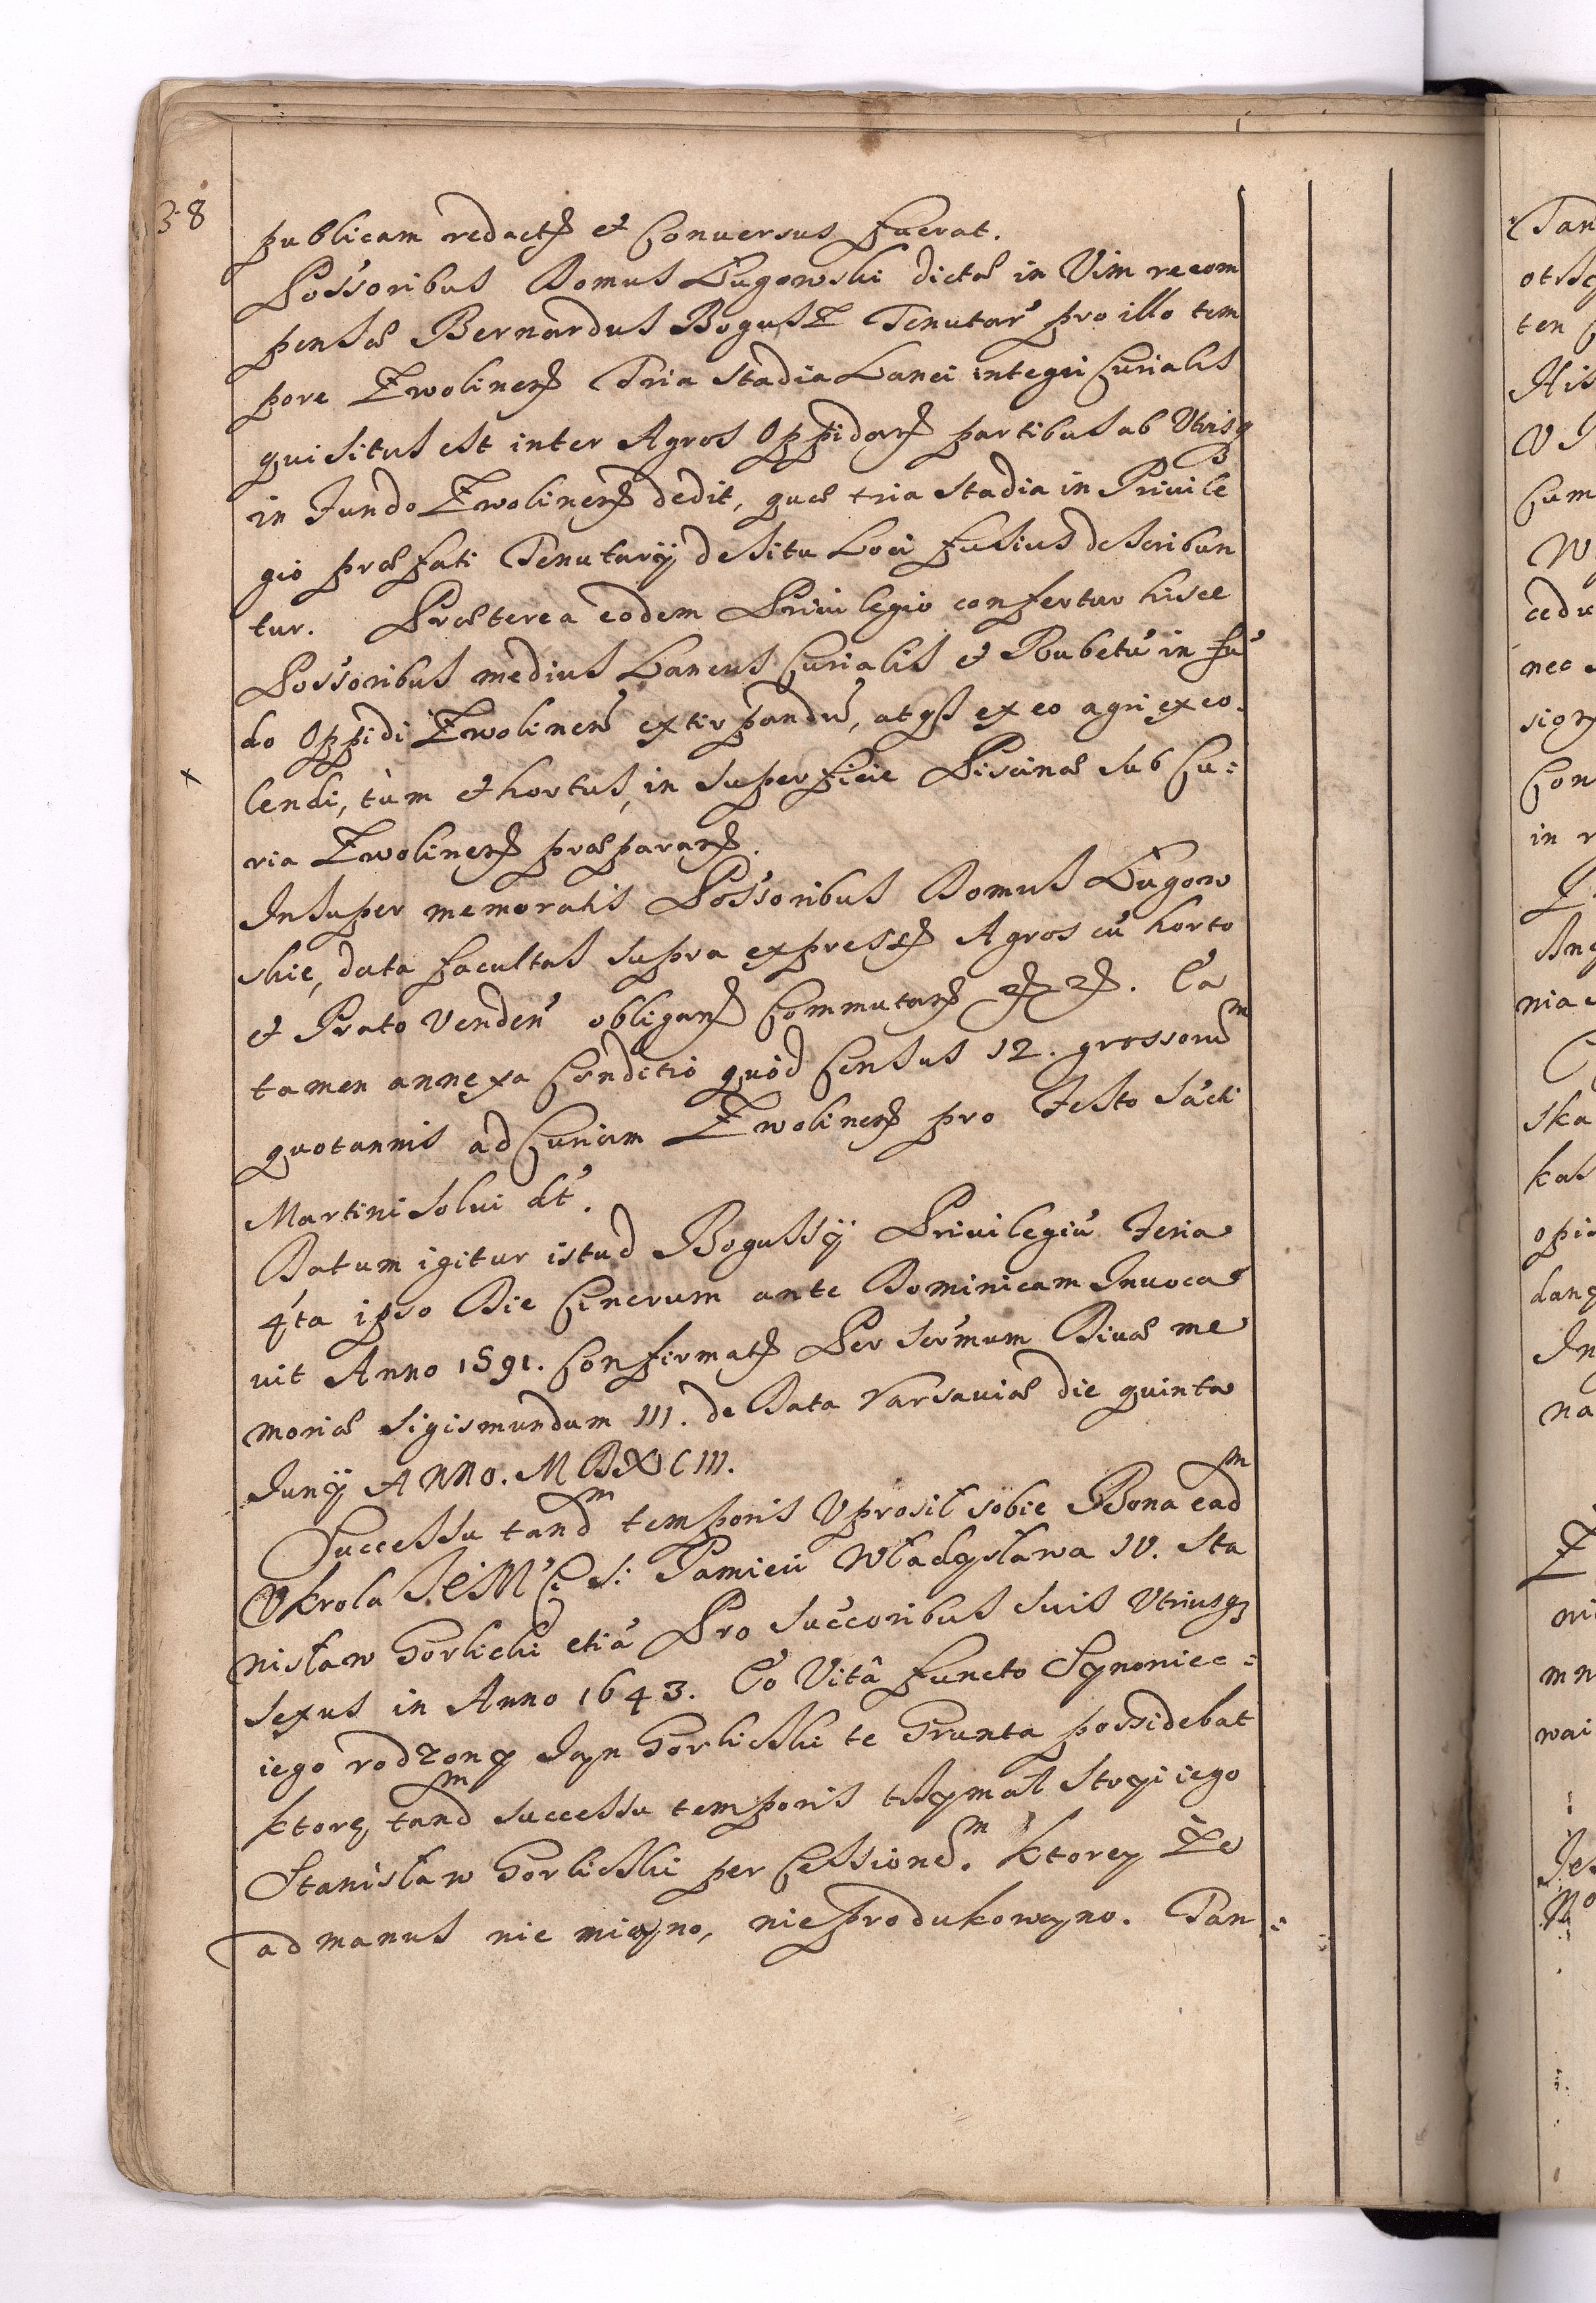 38
publicam redact et Conuersus fuerat.
Possoribus Domus Ługowski dictæ in Vim recom
pensæ Bernardus Bogusz Tenutar pro illo tem
pore Zwolinen Tria Stadia Lanei integri Curialis
qui situs est inter Agros Oppidan partibus ab Utrisq
in Fundo Zwolinen dedit, quæ tria Stadia in Priuile
gio præfati Tenutarÿ de situ Loci fusius describun
tur. Præterea eodem Priuilegio confertur hisce
Possoribus medius Laneus Curialis et Rubetu in fu
do Oppidi Zwolinen extirpandu, atq ex eo agri exco
lendi, tùm et hortus, in superficie Piscinæ sub Cu:
ria Zwolinen præparan.
Insuper memoratis Possoribus Domus Ługow
skie, data facultas supra express Agros cu horto
et Prato Venden obligan Commutan. Ea
tamen annexa Conditio quòd Census 12. grossoru
quotannis ad Curiam Zwolinen pro Festo Sacti
Martini Solui dt.
Datum igitur istud Bogussÿ Priuilegiu Feria
4ta ipso Die Cinerum ante Dominicam Inuoca
uit Anno 1591. Confirmat Per Sermum Diuæ me
moriæ Sigismundum III. de Data Varsauiæ die quinta
Junÿ ANNO. MDXCIII.
Successu tandm temporis Uprosił sobie Bona eadm
U Krola JeM'C S: Pamieci Władysława IV. Sta
nisław Gorlicki etia Pro Succoribus suis Utriusq
sexus in Anno 1643. Eo Vitâ functo Synowiec:
iego rodzony Jan Gorlicki te Grunta possidebat
ktore, tandm successu temporis tryymał Stryi iego
Stanisław Gorlicki per Cessionem. Ktorey że
ad manus nie miano, nie produkowano. Tan: